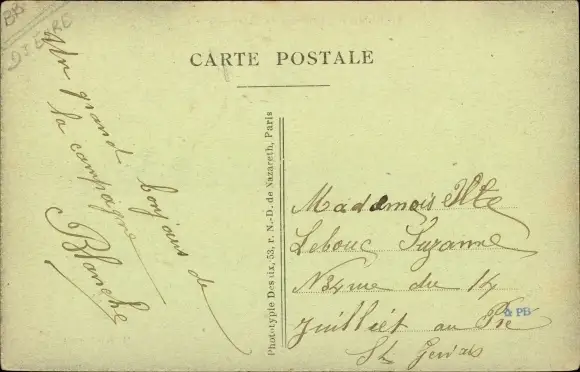 BB
D'EURE
CARTE POSTALE
Un grand bonjour de
la campagne
Blanche
Phototypie Desaix, 53, r. N.-D. de Nazareth, Paris
Mademoiselle
Lebouc Suzanne
N 34 rue du 14
Juilliét au Pré
St Gervais
PB